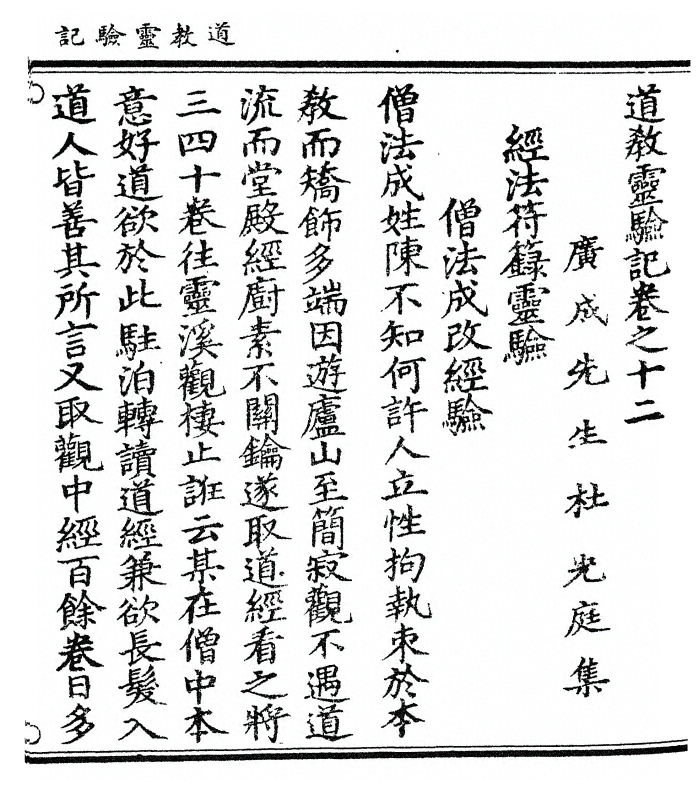 道教靈驗記
道敎靈驗記卷之十二
廣成先生杜光庭集
經法符籙靈驗
僧法成改經驗
僧法成姓陳不知何許人立性拘執束於本
敎而矯飾多端因遊廬山至簡寂觀不遇道
流而堂殿經廚素不關鑰遂取道經看之將
三四十卷往靈溪觀棲止誑云某在僧中本
意好道欲於此駐泊轉讀道經兼欲長髮入
道人皆善其所言又取觀中經百餘卷日多